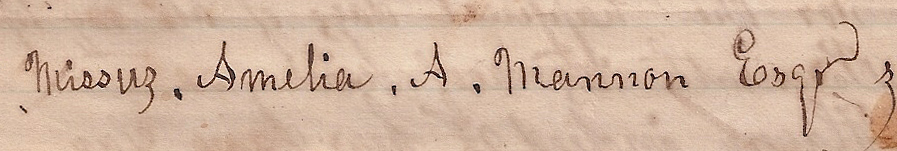 Missuz. Amelia. A. Mannon Esqr